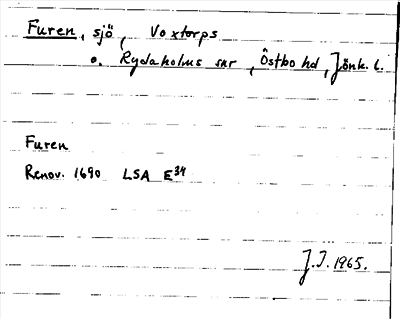 Furen, sjö, Voxtorps
o. Rydaholms snr, Östbo hd, Jönk. l.
Furen
Renov. 1690 LSA E34
J.I. 1965.